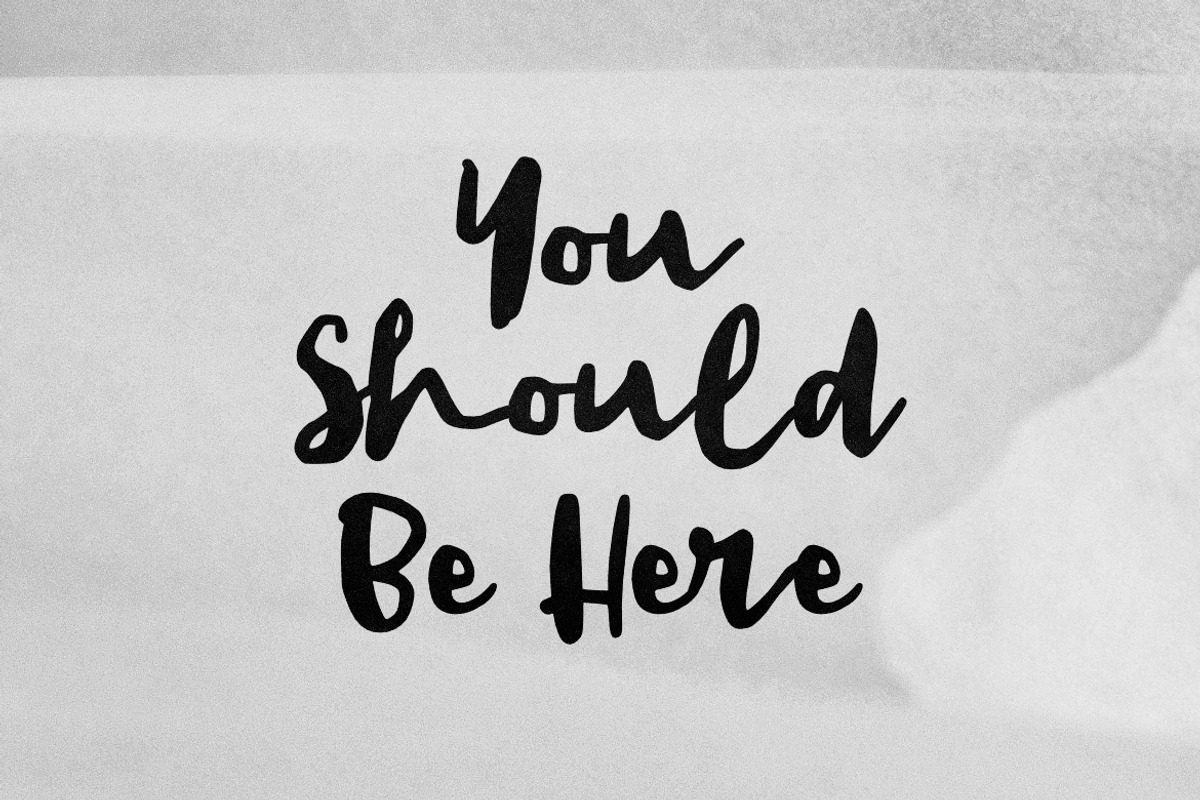 You
Should
Be Here